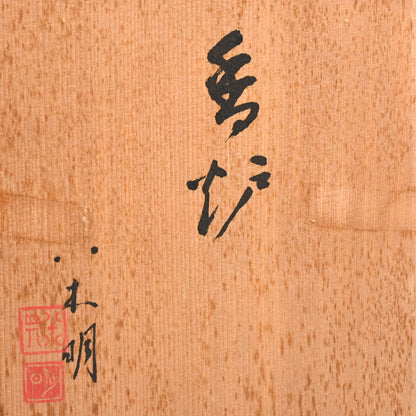 香炉
八木明